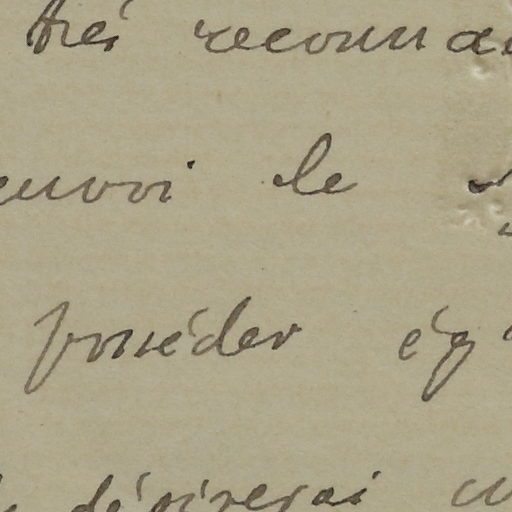 très reconna
envoi le
posséder ég
désirerai